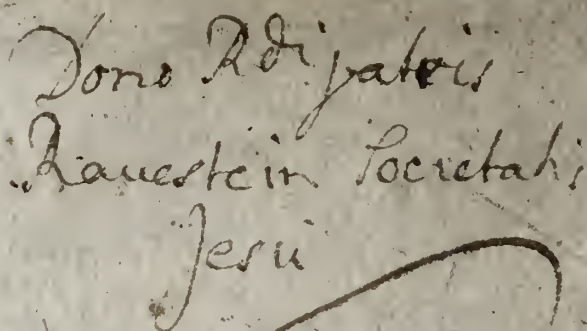 Dono Rdi patris
Rauestein Societatis
Jesu